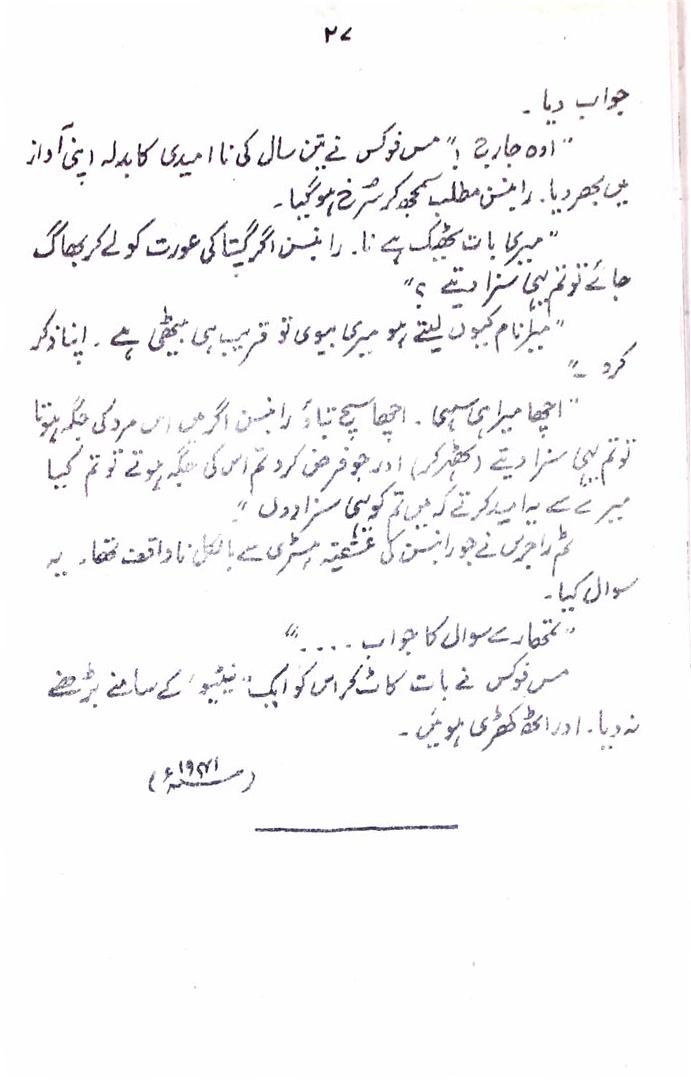 ۲۷
جواب دیا۔
"اوہ جارج!" مس فوکس نے تین سال کی نا امیدی کا بدلہ اپنی آواز
میں بھر دیا۔ رابنسن مطلب سمجھ کر سُرخ ہو گیا۔
"میری بات ٹھیک ہے نا۔ رابنسن اگر گپتا کی عورت کو لے کر بھاگ
جائے تو تم یہی سزا دیتے؟"
"میرا نام کیوں لیتے ہو میری بیوی تو قریب ہی بیٹھی ہے۔ اپنا ذکر
کرو۔"
"اچھا میرا ہی سہی۔ اچھا سچ بتاؤ رابنسن اگر میں اس مرد کی جگہ ہوتا
تو تم یہی سزا دیتے (ٹھہر کر) اور جو فرض کرو تم اس کی جگہ ہوتے تو تم کیا
میرے سے یہ امید کرتے کہ میں تم کو یہی سزا دوں"۔
ٹم راجرس نے جو رابنسن کی عشقیہ ہسٹری سے بالکل ناواقف تھا۔ یہ
سوال کیا۔
"تمھارے سوال کا جواب ....."
مس فوکس نے بات کاٹ کر اس کو ایک "نیٹیو" کے سامنے بڑھنے
نہ دیا۔ اور اٹھ کھڑی ہوئیں۔